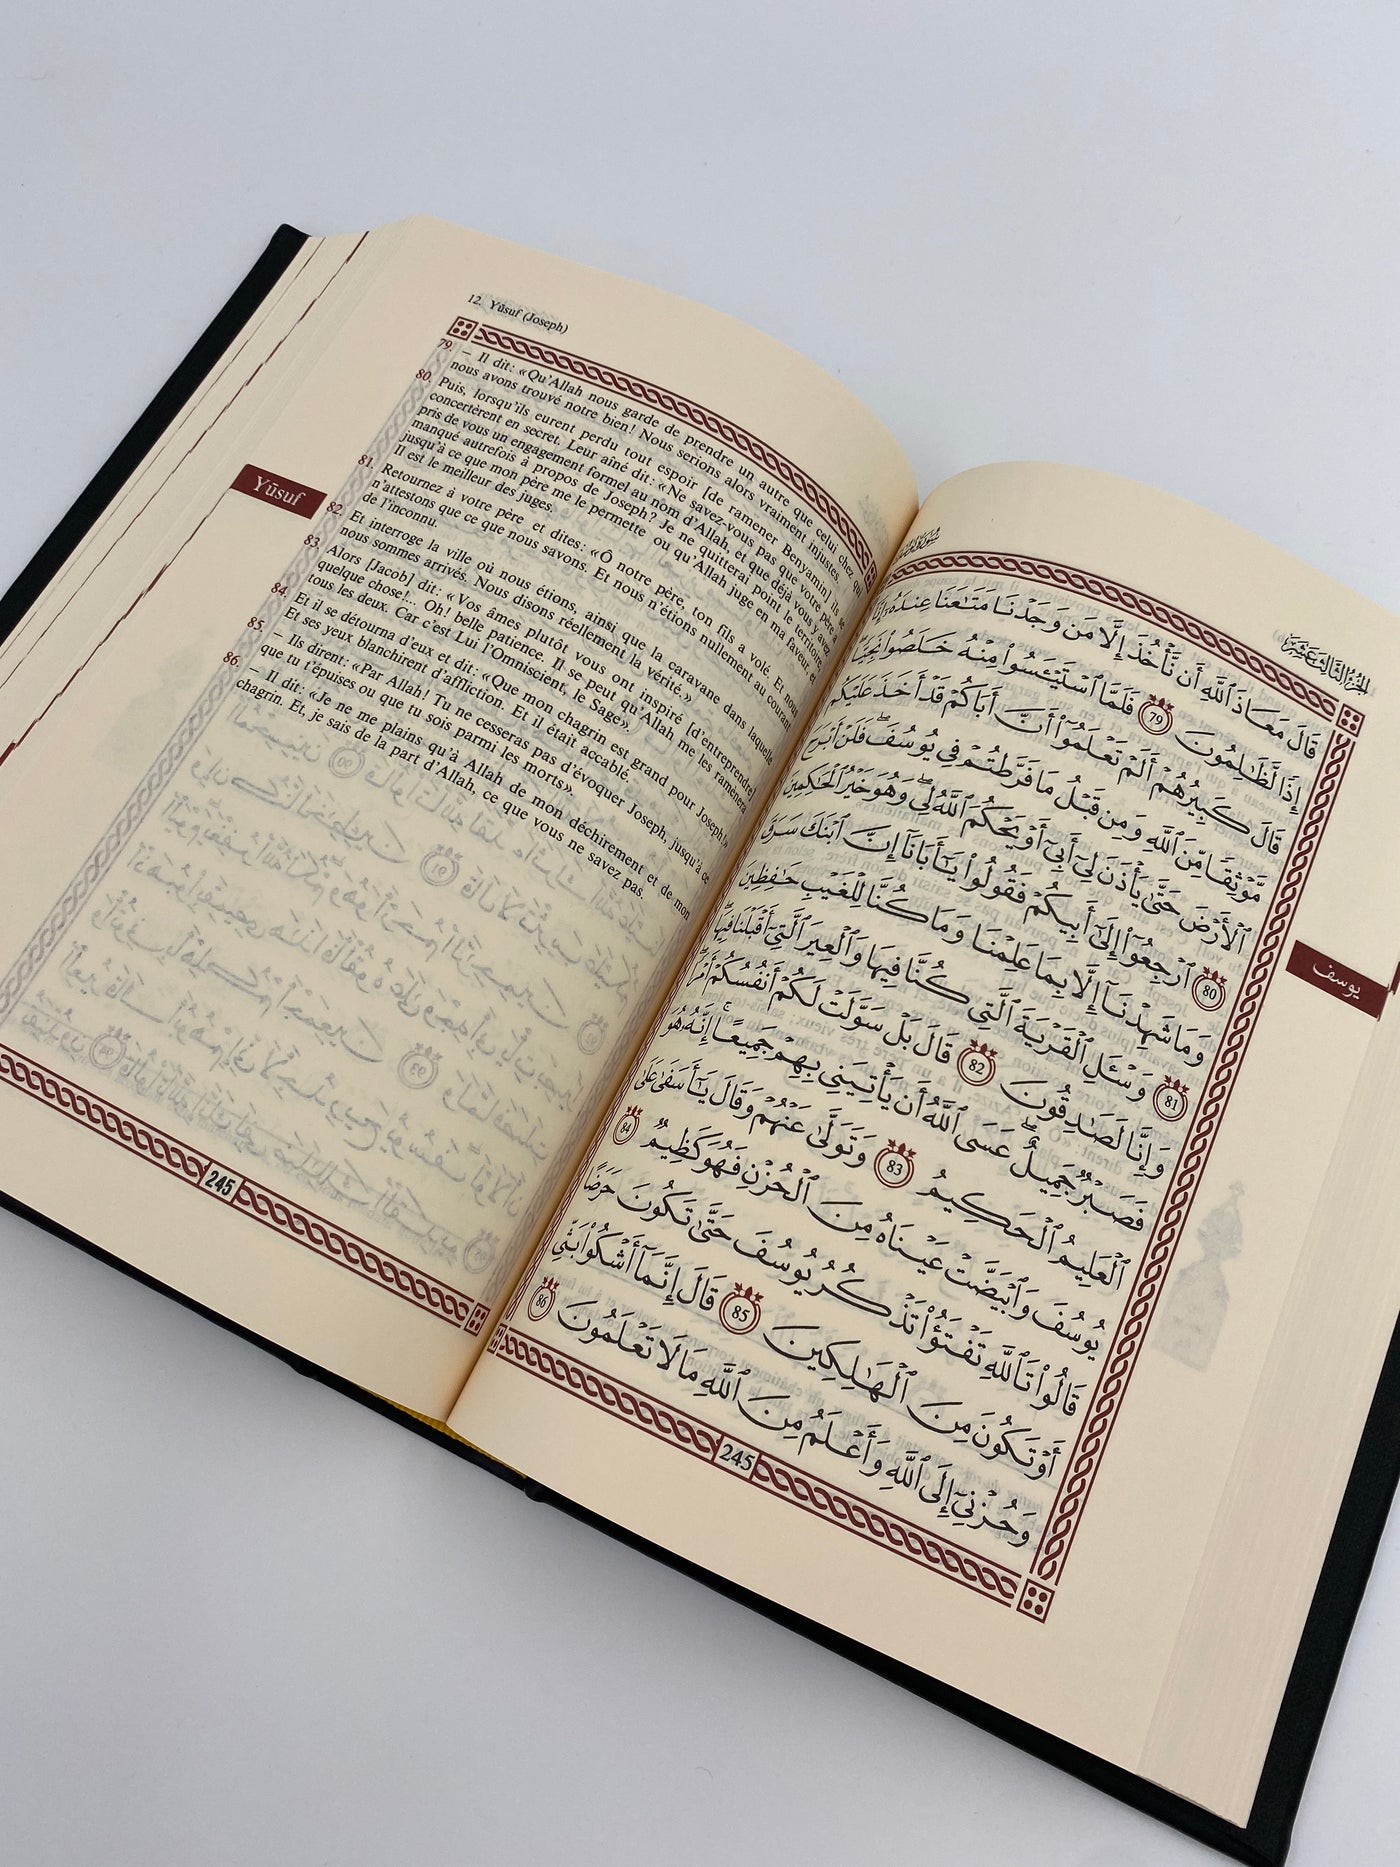 12. Yūsuf (Joseph)
79. – Il dit: «Qu'Allah nous garde de prendre un autre que celui chez qui
nous avons trouvé notre bien! Nous serions alors vraiment injustes.
80. Puis, lorsqu'ils eurent perdu tout espoir [de ramener Benyamin] ils se
concertèrent en secret. Leur aîné dit: «Ne savez-vous pas que votre père a
pris de vous un engagement formel au nom d'Allah, et que déjà vous y avez
manqué autrefois à propos de Joseph? Je ne quitterai point le territoire,
jusqu'à ce que mon père me le permette ou qu'Allah juge en ma faveur, et
Il est le meilleur des juges.
81. Retournez à votre père et dites: «Ô notre père, ton fils a volé. Et nous
n'attestons que ce que nous savons. Et nous n'étions nullement au courant
de l'inconnu.
82. Et interroge la ville où nous étions, ainsi que la caravane dans laquelle
nous sommes arrivés. Nous disons réellement la vérité.»
83. Alors [Jacob] dit: «Vos âmes plutôt vous ont inspiré [d'entreprendre]
quelque chose!.. Oh! belle patience. Il se peut qu'Allah me les ramènera
tous les deux. Car c'est Lui l'Omniscient, le Sage».
84. Et il se détourna d'eux et dit: «Que mon chagrin est grand pour Joseph!»
Et ses yeux blanchirent d'affliction. Et il était accablé.
85. – Ils dirent: «Par Allah! Tu ne cesseras pas d'évoquer Joseph, jusqu'à ce
que tu t'épuises ou que tu sois parmi les morts».
86. – Il dit: «Je ne me plains qu'à Allah de mon déchirement et de mon
chagrin. Et, je sais de la part d'Allah, ce que vous ne savez pas.
Yūsuf
245
الجزء الثالث عشر
قَالَ مَعَاذَ ٱللَّهِ أَن نَّأْخُذَ إِلَّا مَن وَجَدْنَا مَتَٰعَنَا عِندَهُۥٓ إِنَّآ
إِذًا لَّظَٰلِمُونَ 79 فَلَمَّا ٱسْتَيْـَٔسُوا۟ مِنْهُ خَلَصُوا۟ نَجِيًّا
قَالَ كَبِيرُهُمْ أَلَمْ تَعْلَمُوٓا۟ أَنَّ أَبَاكُمْ قَدْ أَخَذَ عَلَيْكُم
مَّوْثِقًا مِّنَ ٱللَّهِ وَمِن قَبْلُ مَا فَرَّطتُمْ فِى يُوسُفَ ۖ فَلَنْ أَبْرَحَ
ٱلْأَرْضَ حَتَّىٰ يَأْذَنَ لِىٓ أَبِىٓ أَوْ يَحْكُمَ ٱللَّهُ لِى ۖ وَهُوَ خَيْرُ ٱلْحَٰكِمِينَ
80 ٱرْجِعُوٓا۟ إِلَىٰٓ أَبِيكُمْ فَقُولُوا۟ يَٰٓأَبَانَآ إِنَّ ٱبْنَكَ سَرَقَ
وَمَا شَهِدْنَآ إِلَّا بِمَا عَلِمْنَا وَمَا كُنَّا لِلْغَيْبِ حَٰفِظِينَ
81 وَسْـَٔلِ ٱلْقَرْيَةَ ٱلَّتِى كُنَّا فِيهَا وَٱلْعِيرَ ٱلَّتِىٓ أَقْبَلْنَا فِيهَا ۖ
وَإِنَّا لَصَٰدِقُونَ 82 قَالَ بَلْ سَوَّلَتْ لَكُمْ أَنفُسُكُمْ أَمْرًا ۖ
فَصَبْرٌ جَمِيلٌ ۖ عَسَى ٱللَّهُ أَن يَأْتِيَنِى بِهِمْ جَمِيعًا ۚ إِنَّهُۥ هُوَ
ٱلْعَلِيمُ ٱلْحَكِيمُ 83 وَتَوَلَّىٰ عَنْهُمْ وَقَالَ يَٰٓأَسَفَىٰ عَلَىٰ
يُوسُفَ وَٱبْيَضَّتْ عَيْنَاهُ مِنَ ٱلْحُزْنِ فَهُوَ كَظِيمٌ 84
قَالُوا۟ تَٱللَّهِ تَفْتَؤُا۟ تَذْكُرُ يُوسُفَ حَتَّىٰ تَكُونَ حَرَضًا
أَوْ تَكُونَ مِنَ ٱلْهَٰلِكِينَ 85 قَالَ إِنَّمَآ أَشْكُوا۟ بَثِّى
وَحُزْنِىٓ إِلَى ٱللَّهِ وَأَعْلَمُ مِنَ ٱللَّهِ مَا لَا تَعْلَمُونَ 86
يوسف
245